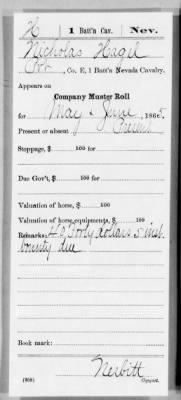 H 1 Batt'n Cav. Nev.
Nicholas Hagel
Co. E, 1 Batt'n Nevada Cavalry.
Appears on
Company Muster Roll
for May & June, 1865
Present or absent Present
Stoppage, $ 100 for
Due Gov't, $ 100 for
Valuation of horse, $ 100
Valuation of horse equipments, $ 100
Remarks: 40 forty dollars 5 inst.
bounty due
Book mark:
Nesbitt
(358) Copyist.